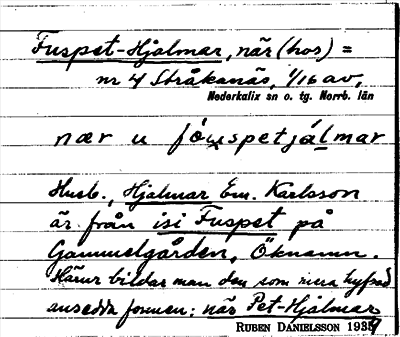 Fuspet-Hjalmar, när (hos) =
nr 4 Stråkanäs, 1/16 av,
Nederkalix sn o. tg. Norrb. län
nær u
Husb., Hjalmar Em. Karlsson
är från isi Fuspet på
Gammelgården, Öknamn.
Härur bildar man den som mera hyfsad
ansedda formen: när Pet-Hjalmar
RUBEN DANIELSSON 1937